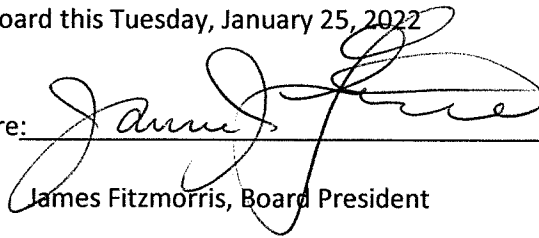 oard this Tuesday, January 25, 2022
re:
James Fitzmorris, Board President